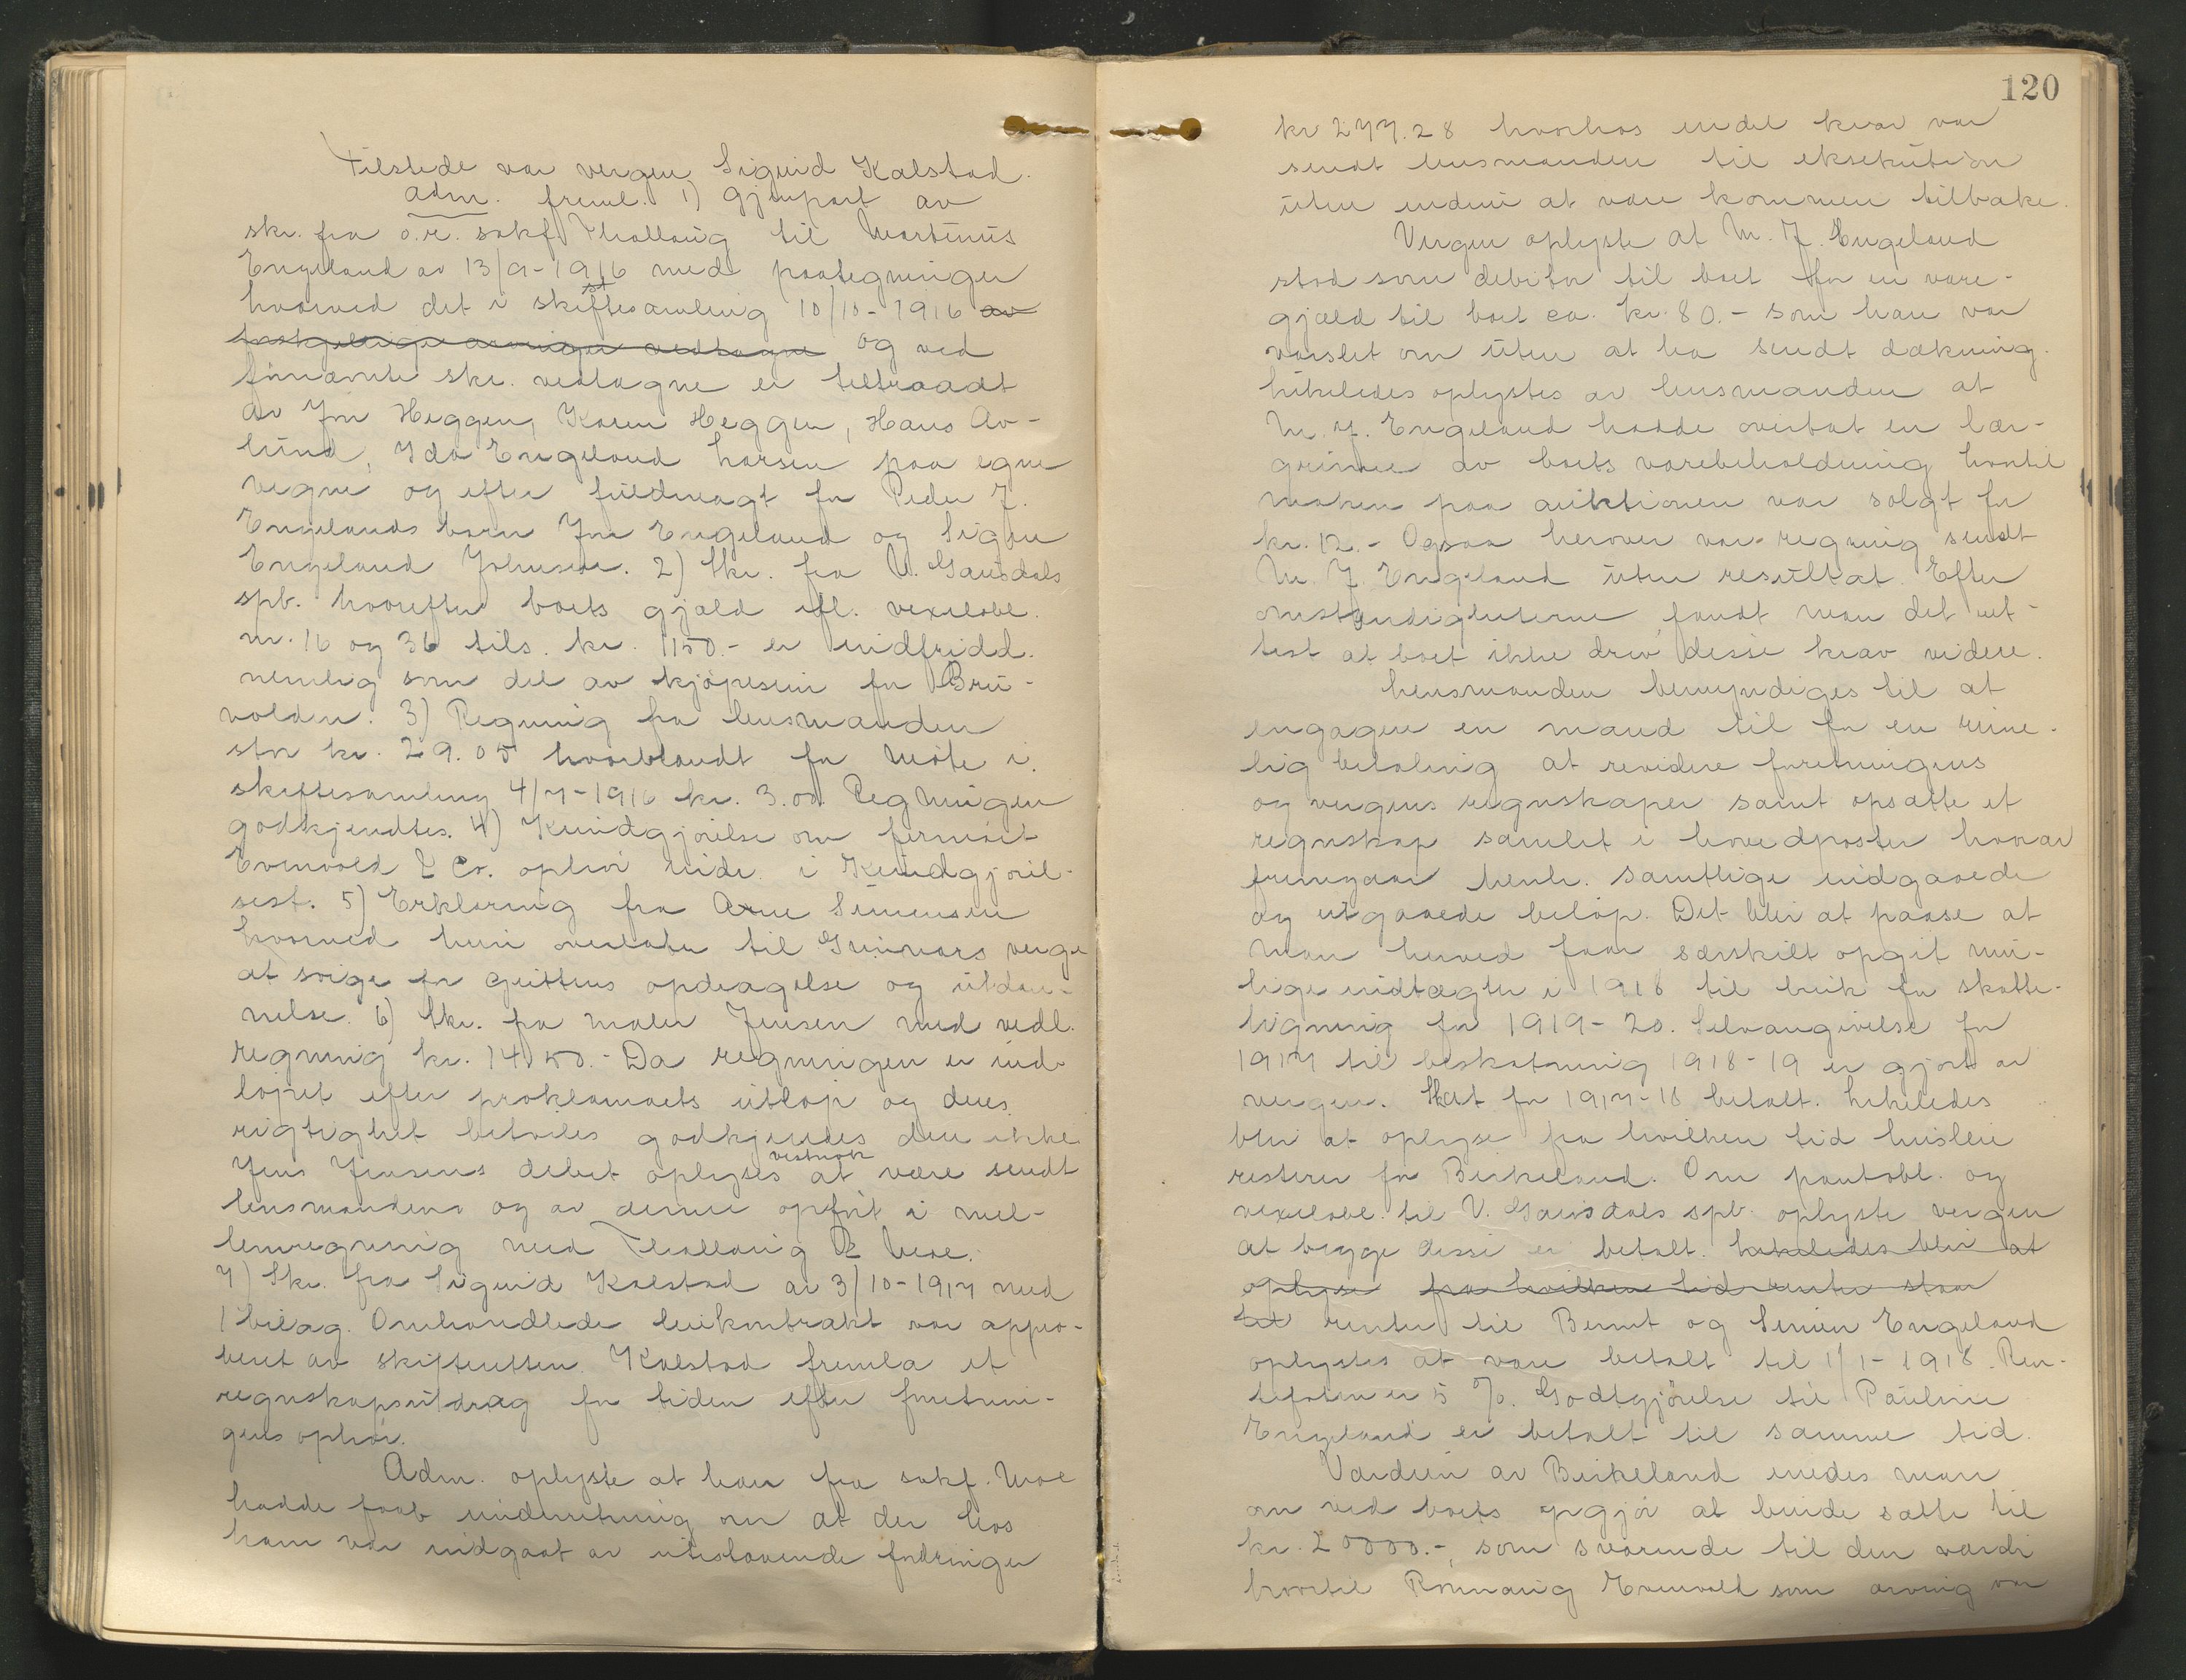 Tilstede var vergen Sigurd Kalstad.
Adm. freml. 1) Gjenpart av
skr. fra o.r. sakf. Thallaug til Martinus
Engeland av 13/9-1916 med paategninger
hvorved det i skiftesamling 10/10-1916 av
forskjellige arvinger vedtagne og ved
førnævnte skr. vedtagne er tiltraadt
av Jon Heggen, Karen Heggen, Hans Av-
lund, Ida Engeland Larsen paa egne
vegne og efter fuldmagt for Peder J.
Engelands barn Jon Engeland og Signe
Engeland Johnsen. 2) Skr. fra V. Gausdals
spb. hvorefter boets gjæld ifl. vexelobl.
nr. 16 og 36 tils. kr. 1150.- er indfridd.
nemlig som del av kjøpesum for Bru-
volden. 3) Regning fra lensmanden
stor kr. 29.05 hvorblandt for møte i
skiftesamling 4/7-1916 kr. 3.00. Regningen
godkjendtes. 4) Kundgjørelse om firmaet
Evenvold & Co. ophør indr. i Kundgjørel-
sest. 5) Erklæring fra Arne Simensen
hvorved hun overlater til Gunnars verge
at sørge for guttens opdragelse og utdan-
nelse. 6) Skr. fra maler Jensen med vedl.
regning kr. 1450.- Da regningen er ind-
løpet efter proklamaets utløp og deres
rigtighet betviles godkjendes den ikke.
Jens Jensens debet oplyses vistnok at være sendt
lensmanden og av denne opført i mel-
lemregning med Thallaug & Moe.
7) Skr. fra Sigurd Kalstad av 3/10-1917 med
1 bilag. Omhandlede leiekontrakt var appro-
beret av skifteretten. Kalstad fremla et
regnskapsutdrag for tiden efter forretnin-
gens ophør.
Adm. oplyste at han fra sakf. Moe
hadde faat underretning om at der hos
ham var indgaat av utestaaende fordringer
120
kr 277.28 hvorhos endel krav var
sendt lensmanden til eksekution
uten endnu at være kommen tilbake.
Vergen oplyste at M. J. Engeland
stod som debitor til boet for en vare-
gjæld til boet ca. kr. 80.- som han var
varslet om uten at ha sendt dækning.
Likeledes oplystes av lensmanden at
M. J. Engeland hadde overtat en lær-
grime av boets varebeholdning hvortil
maken paa auktionen var solgt for
kr. 12.- Ogsaa herover var regning sendt
M. J. Engeland uten resultat. Efter
omstændigheterne fandt man det ret-
test at boet ikke drev disse krav videre.
Lensmanden bemyndiges til at
engagere en mand til for en rime-
lig betaling at revidere forretningens
og vergens regnskaper samt opsætte et
regnskap samlet i hovedposter hvorav
fremgaar henh. samtlige indgaaede
og utgaaede beløp. Det blir at paase at
man herved faar særskilt opgit mu-
lige indtægter i 1918 til bruk for skatte-
ligning for 1919-20. Selvangivelse for
1917 til beskatning 1918-19 er gjort av
vergen. Skat for 1917-18 betalt. Likeledes
blir at oplyse fra hvilken tid husleie
resterer for Birkeland. Om pantobl. og
vexelobl. til V. Gausdals spb. oplyste vergen
at begge disse er betalt. Likeledes blir at
oplyse fra hvilken tid renter staar
til renter til Bernt og Simen Engeland
oplystes at være betalt til 1/1-1918. Ren-
tefoten er 5 %. Godtgjørelse til Pauline
Engeland er betalt til samme tid.
Værdien av Birkeland enedes man
om ved boets opgjør at burde sætte til
kr. 20000.-, som svarende til den værdi
hvortil Rønnaug Evenvold som arving var